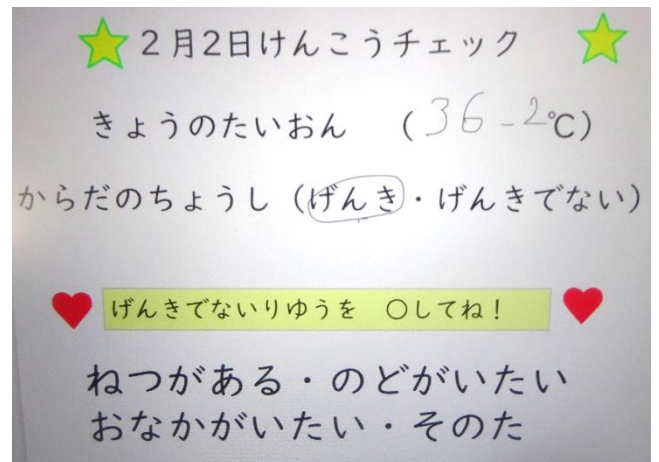 2月2日けんこうチェック
きょうのたいおん (36-2℃)
からだのちょうし (げんき・げんきでない)
げんきでないりゆうを 〇してね!
ねつがある・のどがいたい
おなかがいたい・そのた